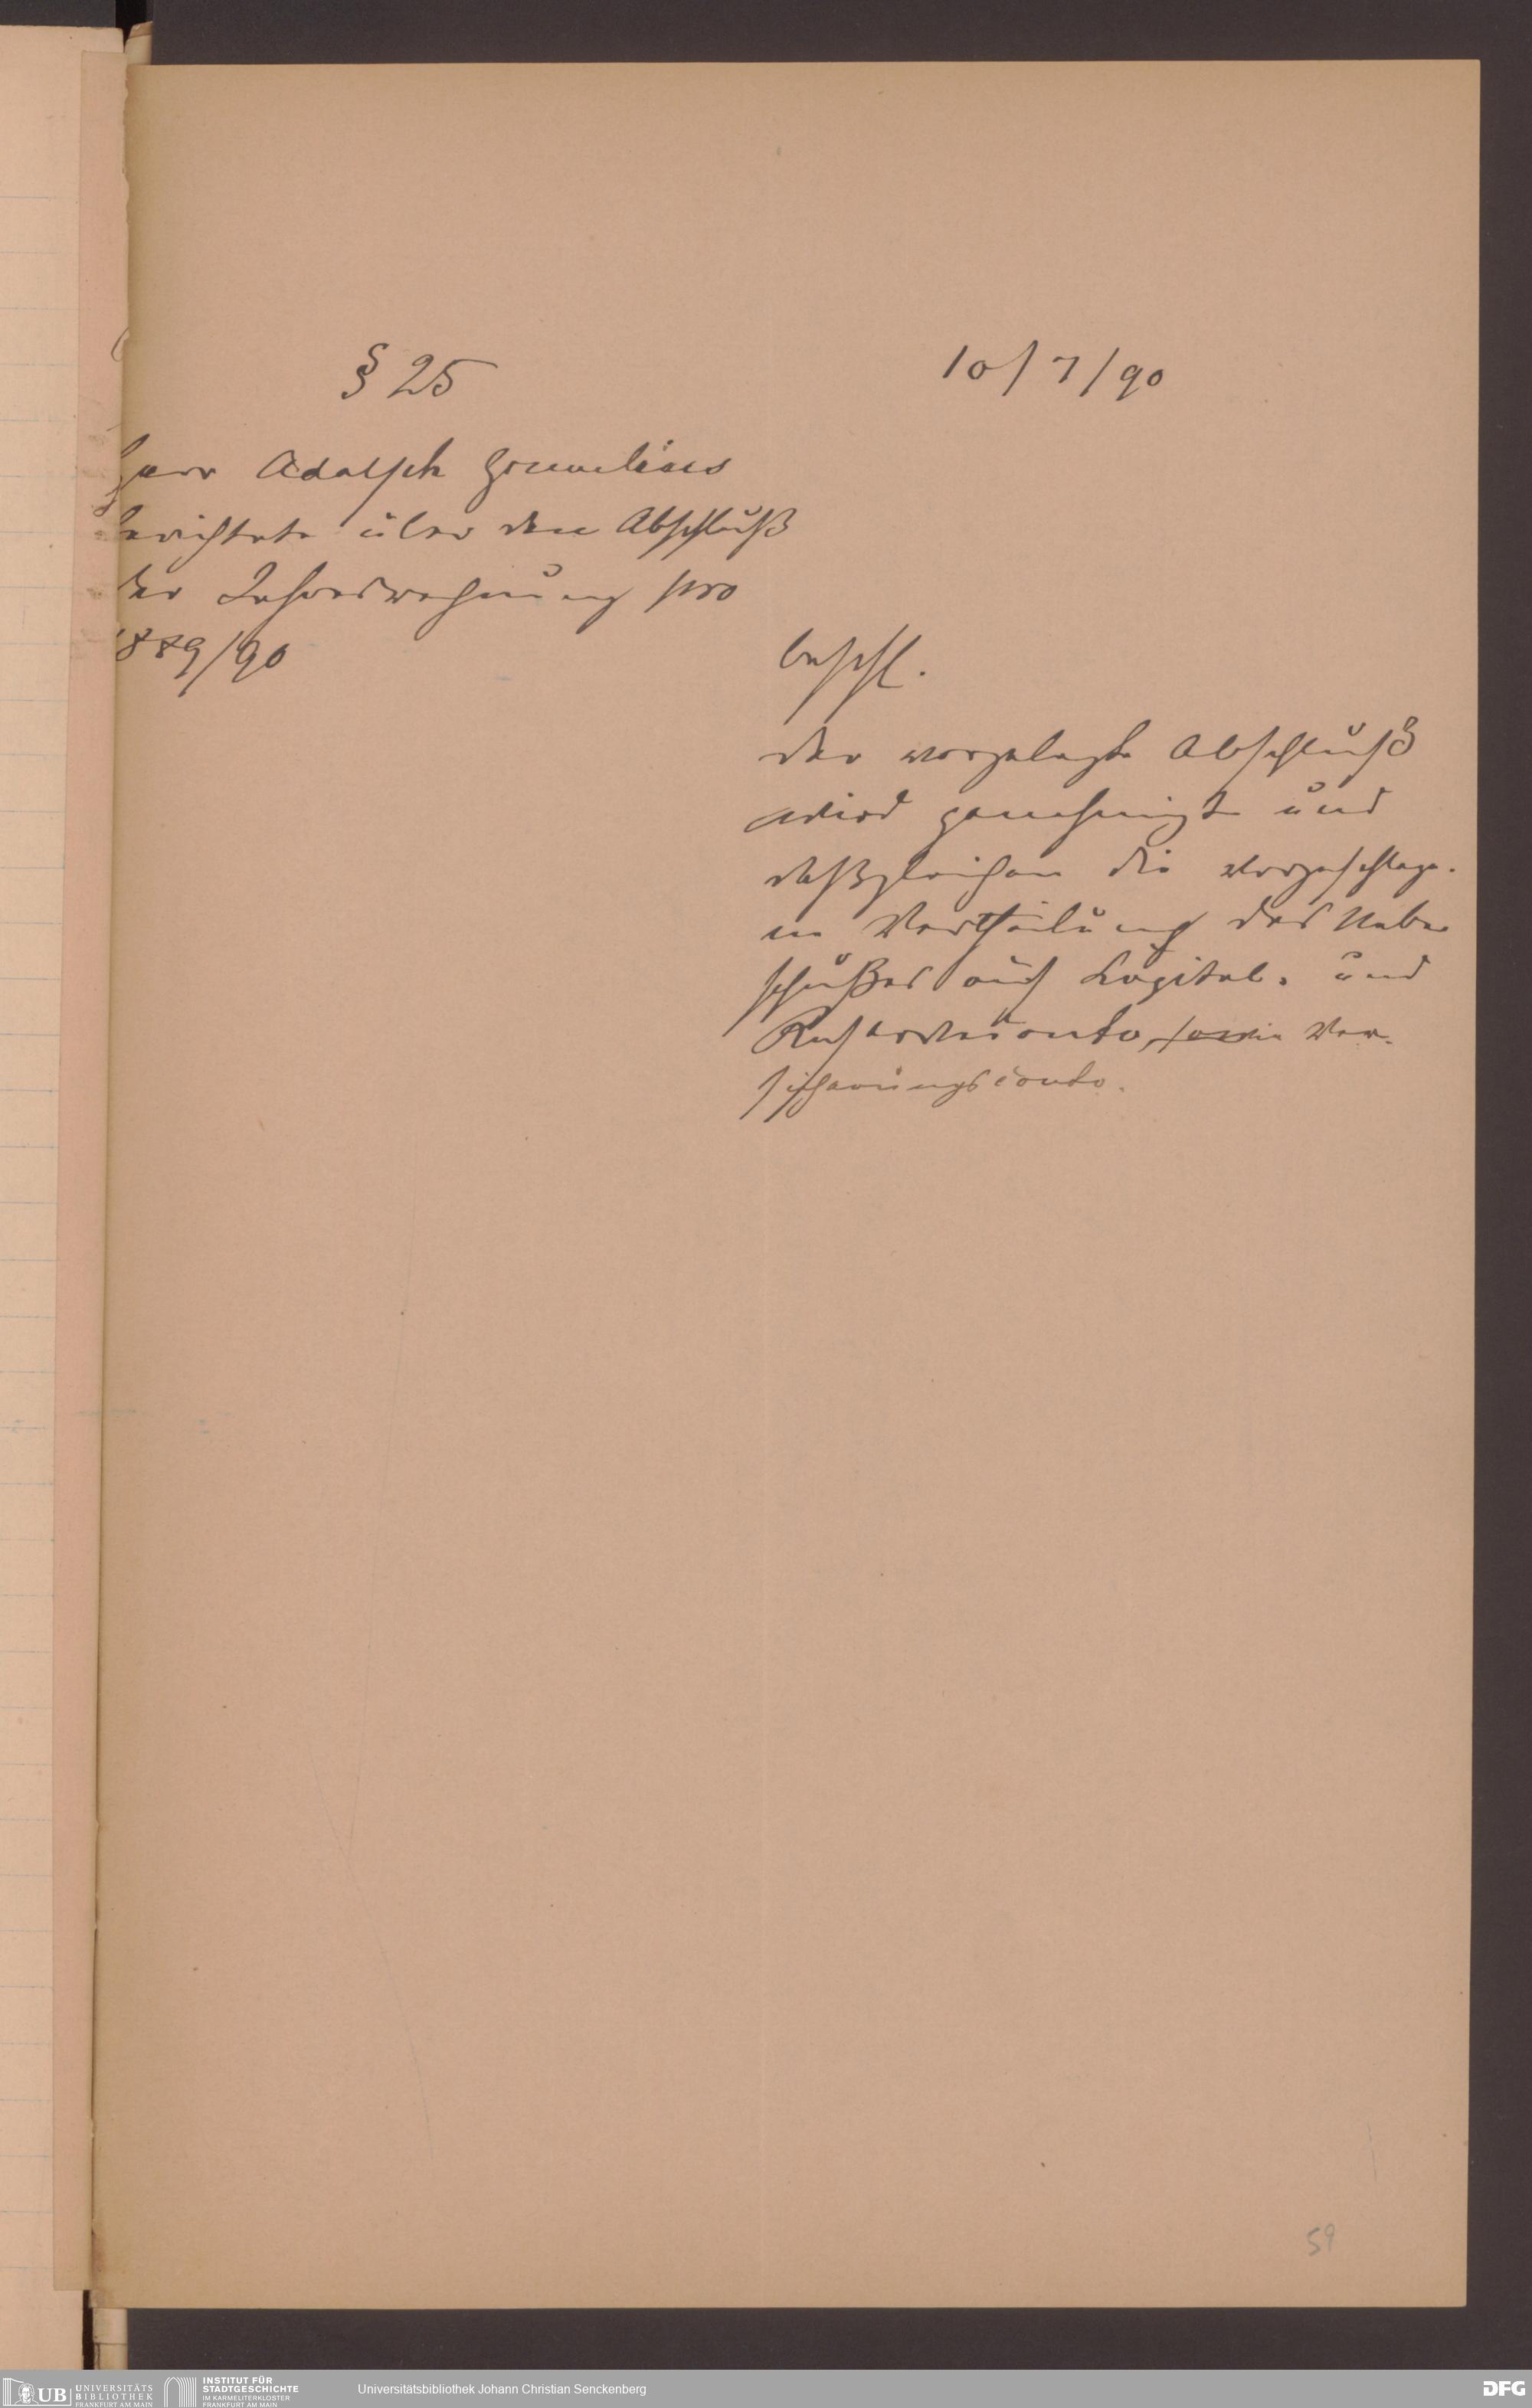 § 25
10/7/90
Herr Adolph Gommelius
berichtete über den Abschluß
der Jahresrechnung pro
1889/90
beschl.
der vorgelegte Abschluß
wird genehmigt und
deßgleichen die vorgeschlage-
ne Vertheilung des Ueber
schußes auf Capital- und
Reserveconto, sowie Ver-
sicherungsconto.
59
UB UNIVERSITÄTS
BIBLIOTHEK
FRANKFURT AM MAIN
INSTITUT FÜR
STADTGESCHICHTE
IM KARMELITERKLOSTER
FRANKFURT AM MAIN
Universitätsbibliothek Johann Christian Senckenberg
DFG